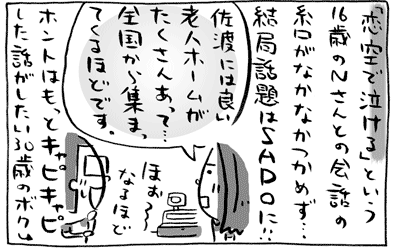 「恋空で泣ける」という
16歳のNさんとの会話の
糸口がなかなかつかめず…
結局話題はSADOに!!
佐渡には良い
老人ホームが
たくさんあって…
全国から集まっ
てくるほどです。
ほぉ〜
なるほど
ホントはもっとキャピキャピ
した話がしたい30歳のボク